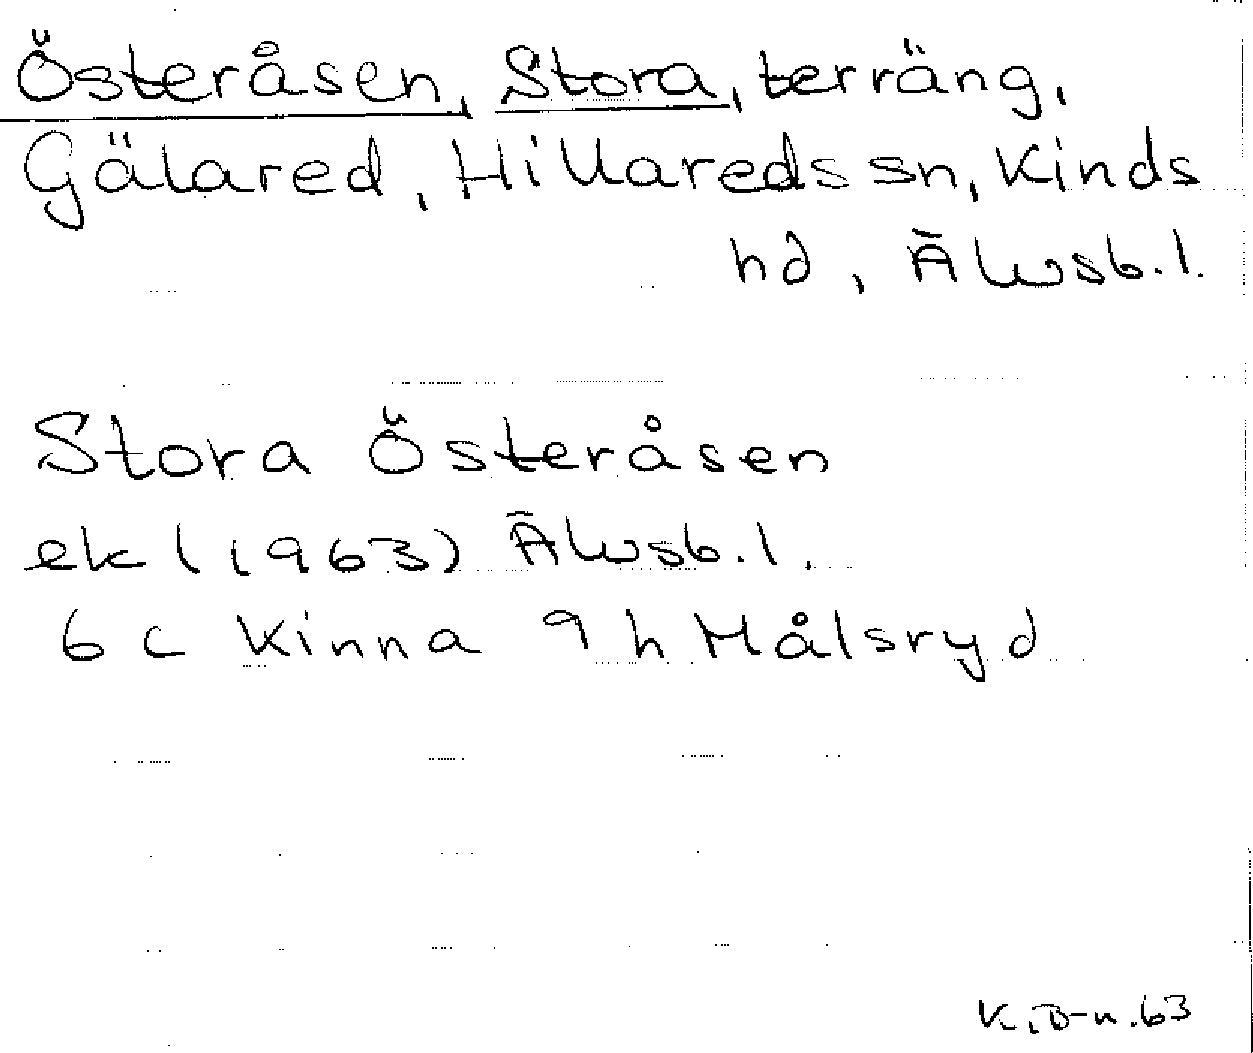 Österåsen, Stora, terräng,
Gälared, Hillareds sn, Kinds
hd, Älvsb. l.
Stora Österåsen
ek (1963) Älvsb. l.
6 c Kinna 9 h Målsryd